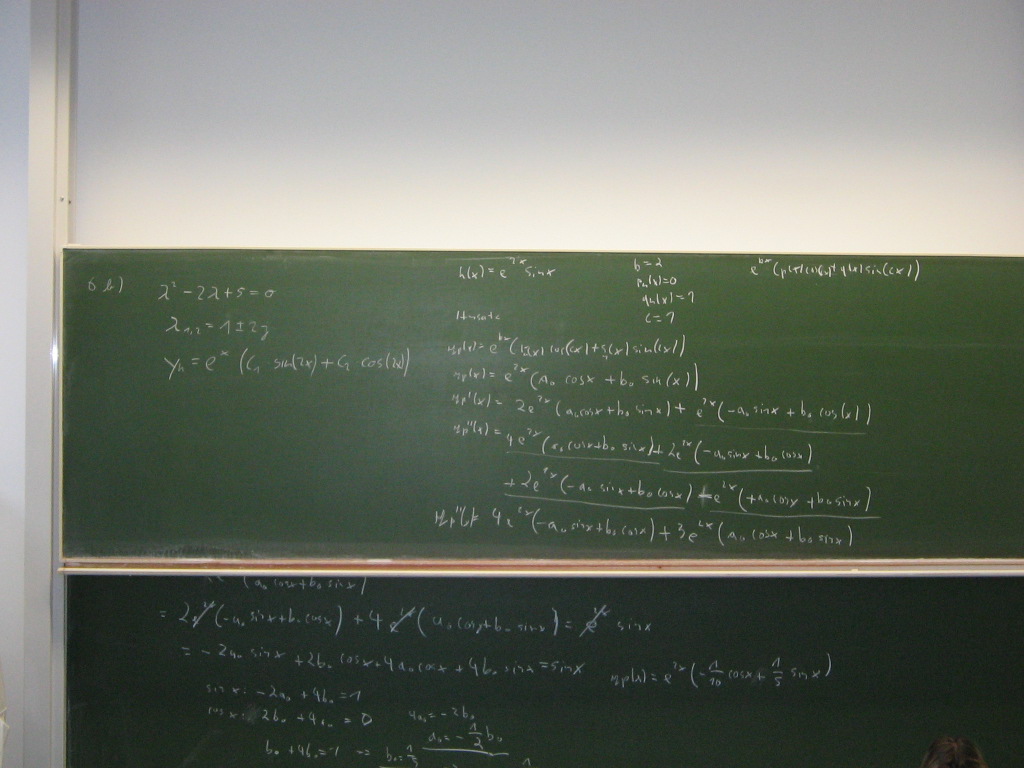 6 b)
λ² - 2λ + 5 = 0
λ₁,₂ = 1 ± 2j
yₕ = eˣ (C₁ sin(2x) + C₁ cos(2x))
h(x) = e²ˣ sin x
b = 2
pₙ(x) = 0
qₙ(x) = 1
c = 1
e^{bx} (p(x) cos(cx) + q(x) sin(cx))
Ansatz
yp(x) = e^{bx} (r(x) cos(cx) + s(x) sin(cx))
yp(x) = e²ˣ (a₀ cos x + b₀ sin(x))
yp'(x) = 2e²ˣ (a₀ cos x + b₀ sin x) + e²ˣ (-a₀ sin x + b₀ cos(x))
yp''(x) = 4e²ˣ (a₀ cos x + b₀ sin x) + 2e²ˣ (-a₀ sin x + b₀ cos x)
+ 2e²ˣ (-a₀ sin x + b₀ cos x) - e²ˣ (+a₀ cos x + b₀ sin x)
yp''(x) = 4e²ˣ (-a₀ sin x + b₀ cos x) + 3e²ˣ (a₀ cos x + b₀ sin x)
(a₀ cos x + b₀ sin x)
= 2e²ˣ (-a₀ sin x + b₀ cos x) + 4e²ˣ (a₀ cos x + b₀ sin x) = e²ˣ sin x
= -2a₀ sin x + 2b₀ cos x + 4a₀ cos x + 4b₀ sin x = sin x
yp(x) = e²ˣ (-1/10 cos x + 1/5 sin x)
sin x: -2a₀ + 4b₀ = 1
cos x: 2b₀ + 4a₀ = 0
4a₀ = -2b₀
a₀ = -1/2 b₀
b₀ + 4b₀ = 1
b₀ = 1/5